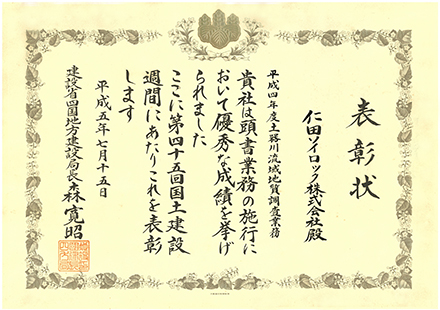 表彰状
仁田ソイロック株式会社殿
平成四年度土器川流域地質調査業務
貴社は頭書業務の施行に
おいて優秀な成績を挙げ
られました
ここに第四十五回国土建設
週間にあたりこれを表彰
します
平成五年七月十五日
建設省四国地方建設局長森寛昭